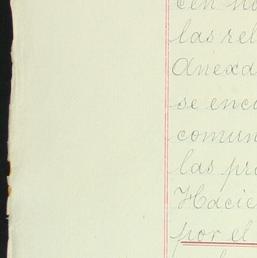 las rel
Anexa
se enco
comun
las pr
Hacie
por el